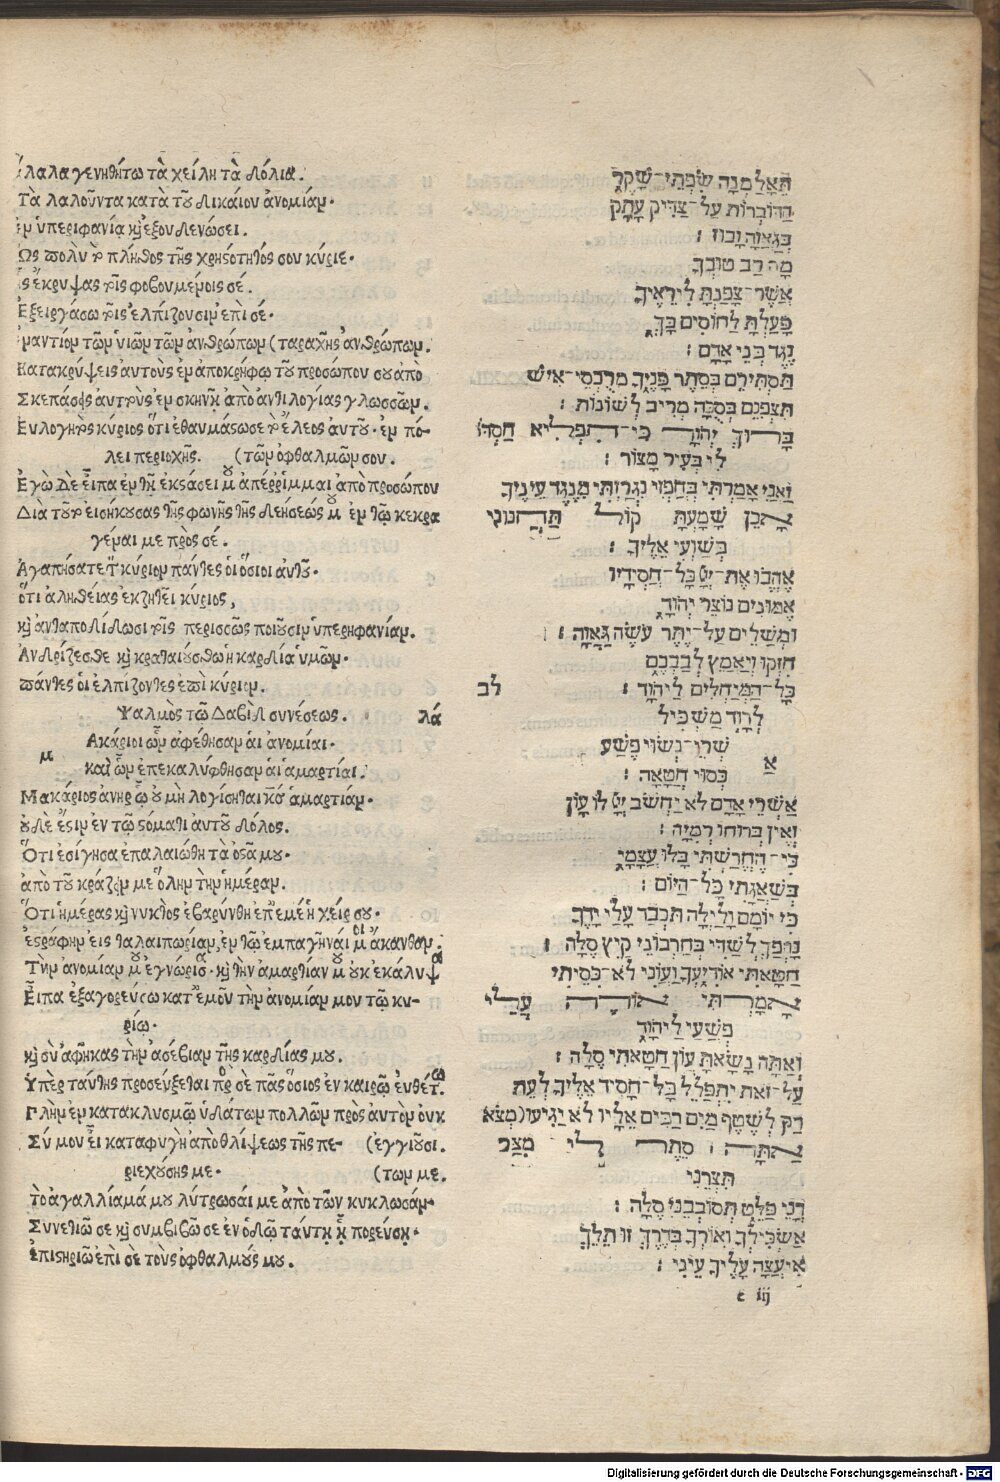 λαλα γενηθήτω τὰ χείλη τὰ δόλια.
Τὰ λαλοῦντα κατὰ τοῦ δικαίου ἀνομίαν·
ἐν ὑπεριφανίᾳ καὶ ἐξουδενώσει.
Ὡς πολὺ τὸ πλῆθος τῆς χρηστότητός σου κύριε·
ἧς ἔκρυψας τοῖς φοβουμένοις σέ.
Ἐξειργάσω τοῖς ἐλπίζουσιν ἐπὶ σέ·
ἐναντίον τῶν υἱῶν τῶν ἀνθρώπων (ταραχῆς ἀνθρώπων.
Κατακρύψεις αὐτοὺς ἐν ἀποκρήφῳ τοῦ προσώπου σου ἀπὸ
Σκεπάσεις αὐτοὺς ἐν σκηνῇ ἀπὸ ἀντιλογίας γλωσσῶν.
Εὐλογητὸς κύριος ὅτι ἐθαυμάστωσε τὸ ἔλεος αὐτοῦ· ἐν πό-
λει περιοχῆς. (τῶν ὀφθαλμῶν σου.
Ἐγὼ δὲ εἶπα ἐν τῇ ἐκστάσει μου ἀπέρριμμαι ἀπὸ προσώπου
Διὰ τοῦτο εἰσήκουσας τῆς φωνῆς τῆς δεήσεώς μου ἐν τῷ κεκρα
γέναι με πρὸς σέ.
Ἀγαπήσατε τὸν κύριον πάντες οἱ ὅσιοι αὐτοῦ·
ὅτι ἀληθείας ἐκζητεῖ κύριος,
καὶ ἀνταποδίδωσι τοῖς περισσῶς ποιοῦσιν ὑπερηφανίαν.
Ἀνδρίζεσθε καὶ κραταιούσθω ἡ καρδία ὑμῶν·
πάντες οἱ ἐλπίζοντες ἐπὶ κύριον.
Ψαλμὸς τῷ Δαβὶδ συνέσεως. λά
Ακάριοι ὧν ἀφέθησαν αἱ ἀνομίαι·
μ
καὶ ὧν ἐπεκαλύφθησαν αἱ ἁμαρτίαι.
Μακάριος ἀνὴρ ᾧ οὐ μὴ λογίσηται κύριος ἁμαρτίαν·
οὐδὲ ἔστιν ἐν τῷ στόματι αὐτοῦ δόλος.
Ὅτι ἐσίγησα ἐπαλαιώθη τὰ ὀστᾶ μου·
ἀπὸ τοῦ κράζειν με ὅλην τὴν ἡμέραν.
Ὅτι ἡμέρας καὶ νυκτὸς ἐβαρύνθη ἐπ' ἐμὲ ἡ χείρ σου·
ἐστράφην εἰς ταλαιπωρίαν ἐν τῷ ἐμπαγῆναί μοι ἄκανθαν.
Τὴν ἀνομίαν μου ἐγνώρισα· καὶ τὴν ἁμαρτίαν μου οὐκ ἐκάλυψα
Εἶπα ἐξαγορεύσω κατ' ἐμοῦ τὴν ἀνομίαν μου τῷ κυ-
ρίῳ·
καὶ σὺ ἀφῆκας τὴν ἀσέβιαν τῆς καρδίας μου.
Ὑπὲρ ταύτης προσεύξεται πρὸς σὲ πᾶς ὅσιος ἐν καιρῷ εὐθέτῳ.
Πλὴν ἐν κατακλυσμῷ ὑδάτων πολλῶν πρὸς αὐτὸν οὐκ
Σύ μου εἶ καταφυγὴ ἀπὸ θλίψεως τῆς πε- (ἐγγιοῦσι.
ριεχούσης με· (των με.
τὸ ἀγαλλίαμά μου λύτρωσαί με ἀπὸ τῶν κυκλωσάν-
Συνετιῶ σε καὶ συμβιβῶ σε ἐν ὁδῷ ταύτῃ ᾗ πορεύσῃ·
ἐπιστηριῶ ἐπὶ σὲ τοὺς ὀφθαλμούς μου.
תֵּאָלַמְנָה שִׂפְתֵי־שָׁקֶר
הַדּוֹבְרוֹת עַל־צַדִּיק עָתָק
בְּגַאֲוָה וָבוּז :
מָה רַב טוּבְךָ
אֲשֶׁר־צָפַנְתָּ לִירֵאֶיךָ
פָּעַלְתָּ לַחוֹסִים בָּךְ
נֶגֶד בְּנֵי אָדָם :
תַּסְתִּירֵם בְּסֵתֶר פָּנֶיךָ מֵרֻכְסֵי־אִישׁ
תִּצְפְּנֵם בְּסֻכָּה מֵרִיב לְשׁוֹנוֹת :
בָּרוּךְ יְהוָֹה כִּי־הִפְלִיא חַסְדּוֹ
לִי בְּעִיר מָצוֹר :
וַאֲנִי אָמַרְתִּי בְחָפְזִי נִגְרַזְתִּי מִנֶּגֶד עֵינֶיךָ
אָכֵן שָׁמַעְתָּ קוֹל תַּחֲנוּנַי
בְּשַׁוְּעִי אֵלֶיךָ :
אֶהֱבוּ אֶת־יְיָ כָּל־חֲסִידָיו
אֱמוּנִים נוֹצֵר יְהוָֹה
וּמְשַׁלֵּים עַל־יֶתֶר עֹשֵׂה גַאֲוָה :
חִזְקוּ וְיַאֲמֵץ לְבַבְכֶם
כָּל־הַמְיַחֲלִים לַיהוָֹה : לב
לְדָוִד מַשְׂכִּיל
שְׁרֵי־נְשׂוּי פֶּשַׁע
א
כְּסוּי חֲטָאָה :
אַשְׁרֵי אָדָם לֹא יַחְשֹׁב יְיָ לוֹ עָוֹן
וְאֵין בְּרוּחוֹ רְמִיָּה :
כִּי־הֶחֱרַשְׁתִּי בָּלוּ עֲצָמָי
בְּשַׁאֲגָתִי כָּל־הַיּוֹם :
כִּי יוֹמָם וָלַיְלָה תִּכְבַּד עָלַי יָדֶךָ
נֶהְפַּךְ לְשַׁדִּי בְּחַרְבוֹנֵי קַיִץ סֶלָה :
חַטָּאתִי אוֹדִיעֲךָ וַעֲוֹנִי לֹא־כִסִּיתִי
אָמַרְתִּי אוֹדֶה עֲלֵי
פְשָׁעַי לַיהוָֹה
וְאַתָּה נָשָׂאתָ עֲוֹן חַטָּאתִי סֶלָה :
עַל־זֹאת יִתְפַּלֵּל כָּל־חָסִיד אֵלֶיךָ לְעֵת
רַק לְשֵׁטֶף מַיִם רַבִּים אֵלָיו לֹא יַגִּיעוּ (מְצֹא
אַתָּה סֵתֶר לִי מִצַּר
תִּצְּרֵנִי
רָנֵּי פַלֵּט תְּסוֹבְבֵנִי סֶלָה :
אַשְׂכִּילְךָ וְאוֹרְךָ בְּדֶרֶךְ זוּ תֵלֵךְ
אִיעֲצָה עָלֶיךָ עֵינִי :
c iij
Digitalisierung gefördert durch die Deutsche Forschungsgemeinschaft - DFG